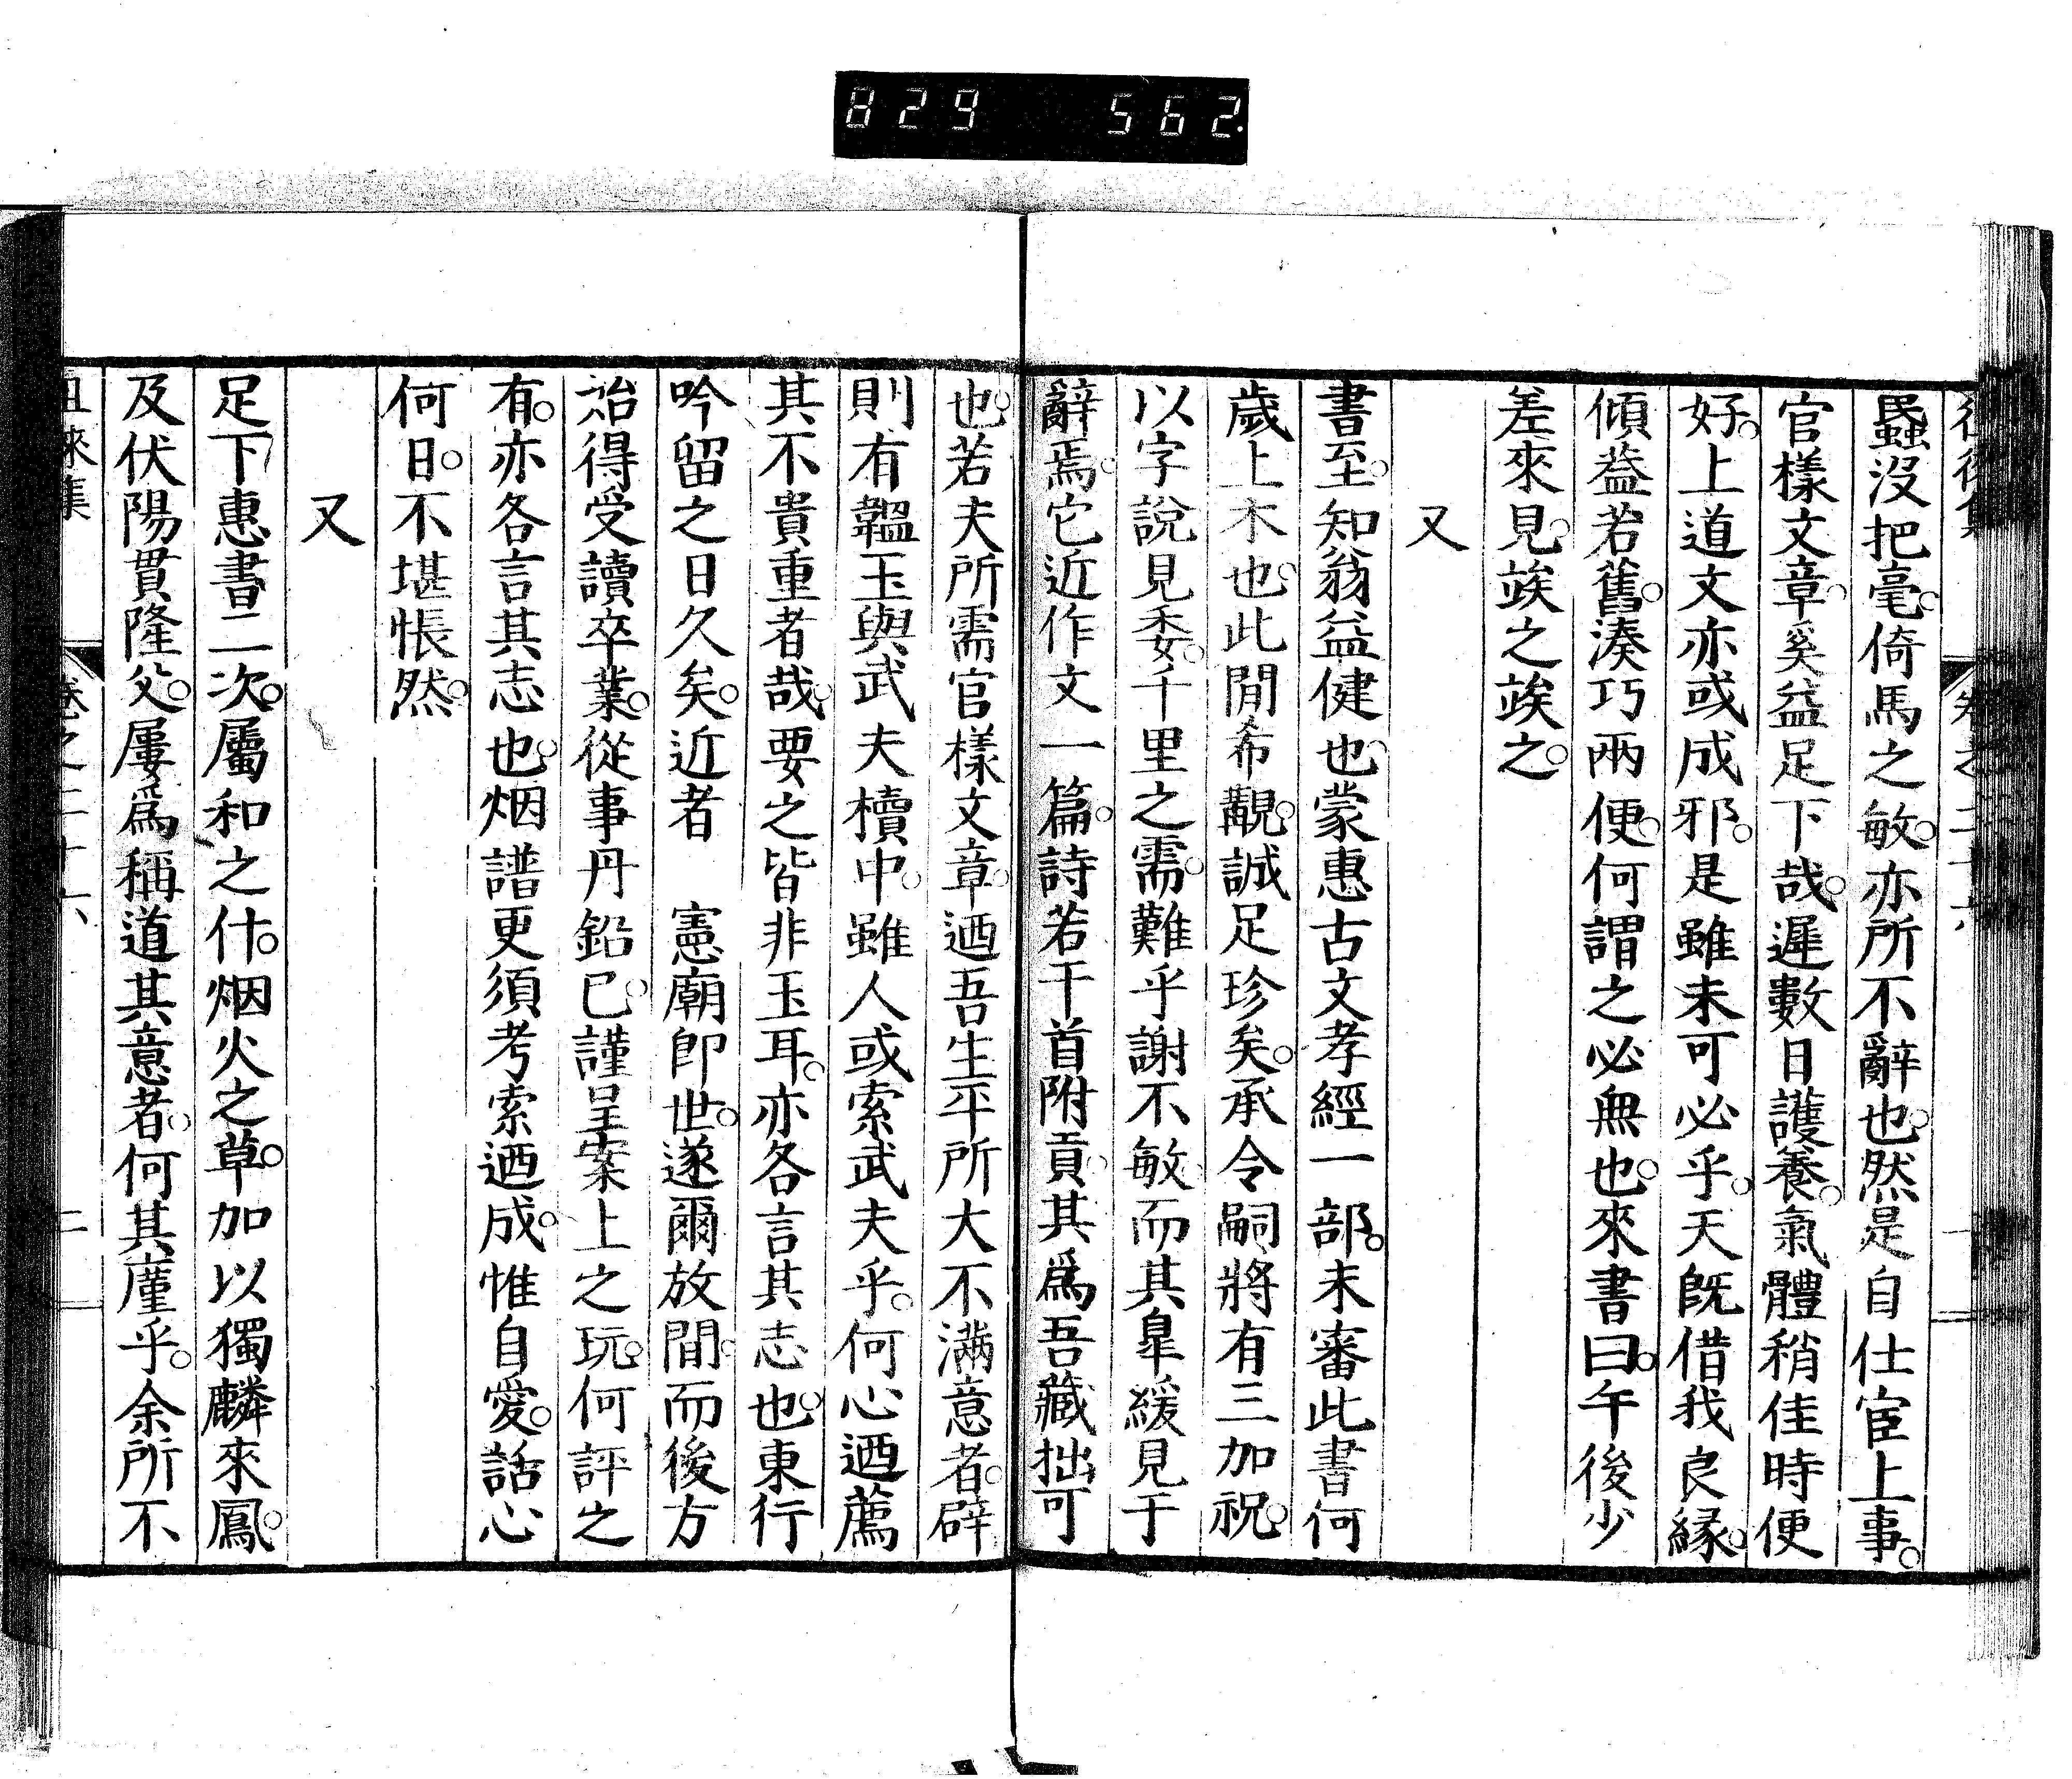 829 562
蟁沒把毫。倚馬之敏。亦所不辭也。然是自仕宦上事。
官樣文章。奚益足下哉。遲數日護養。氣體稍佳時便
好。上道文亦或成邪。是雖未可必乎。天既借我良緣。
傾蓋若舊。湊巧兩便。何謂之必無也。來書曰。午後少
差來見。竢之竢之。
又
書至。知翁益健也。蒙惠古文孝經一部。未審此書何
歲上木也。此間希覯。誠足珍矣。承令嗣將有三加祝。
以字說見委。千里之需。難乎謝不敏。而其皐緩見于
辭焉。它近作文一篇。詩若干首附貢。其爲吾藏拙可
也。若夫所需官樣文章。迺吾生平所大不滿意者。辟
則有韞玉與武夫櫝中。雖人或索武夫乎。何心迺薦
其不貴重者哉。要之皆非玉耳。亦各言其志也。東行
吟留之日久矣。近者 憲廟卽世。遂爾放閒。而後方
始得受讀卒業。從事丹鉛已。謹呈案上之玩。何評之
有。亦各言其志也。烟譜更須考索迺成。惟自愛。話心
何日。不堪悵然。
又
足下惠書二次。屬和之什。烟火之草。加以獨麟來鳳。
及伏陽貫隆父。屢爲稱道其意者。何其廑乎。余所不
徠集 卷之二十六 二